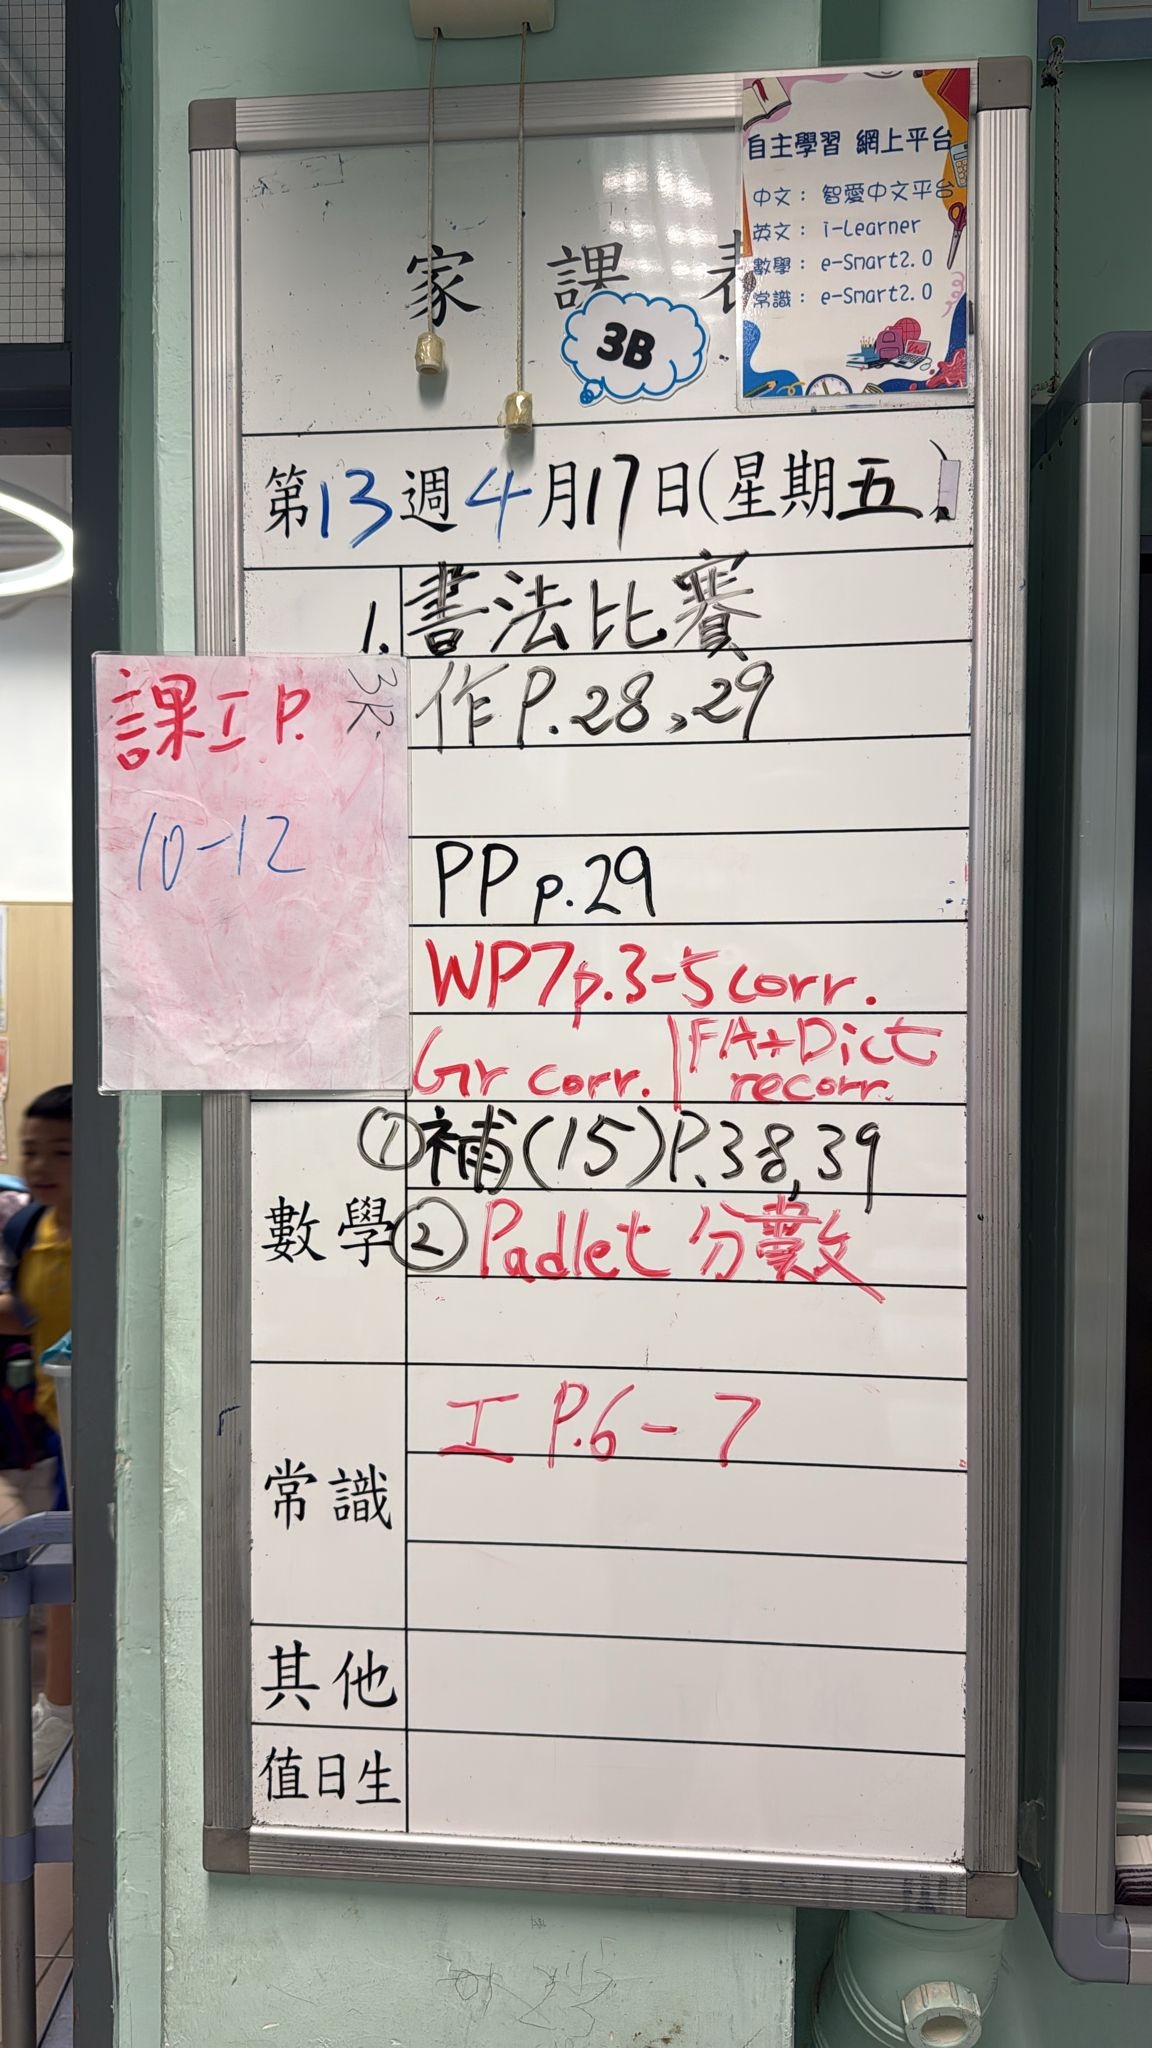 自主學習 網上平台
中文： 智愛中文平台
英文： i-Learner
數學： e-Smart2.0
常識： e-Smart2.0
家 課 表
3B
第13週4月17日(星期五)
1. 書法比賽
作P.28,29
課工P.
10-12
PP p.29
WP7 p.3-5 corr.
Gr corr. | FA+Dict recorr.
數學
① 補(15)P.38,39
② Padlet 分數
常識
工 P.6-7
其他
值日生